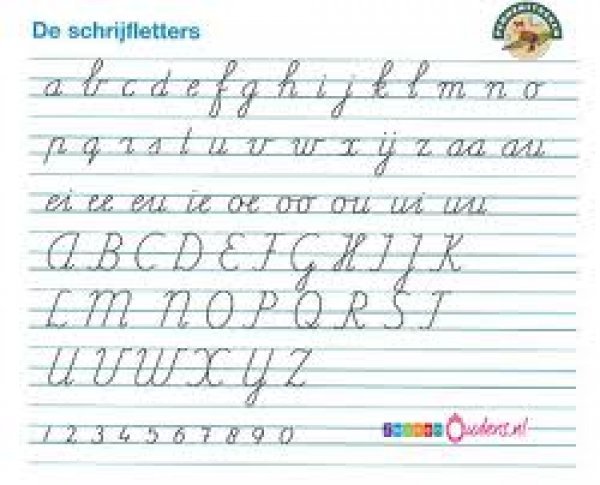 De schrijfletters
a b c d e f g h i j k l m n o
p q r s t u v w x ij z aa au
ei ee eu ie oe oo ou ui uu
A B C D E F G H I J K
L M N O P Q R S T
U V W X Y Z
1 2 3 4 5 6 7 8 9 0
Ouders.nl